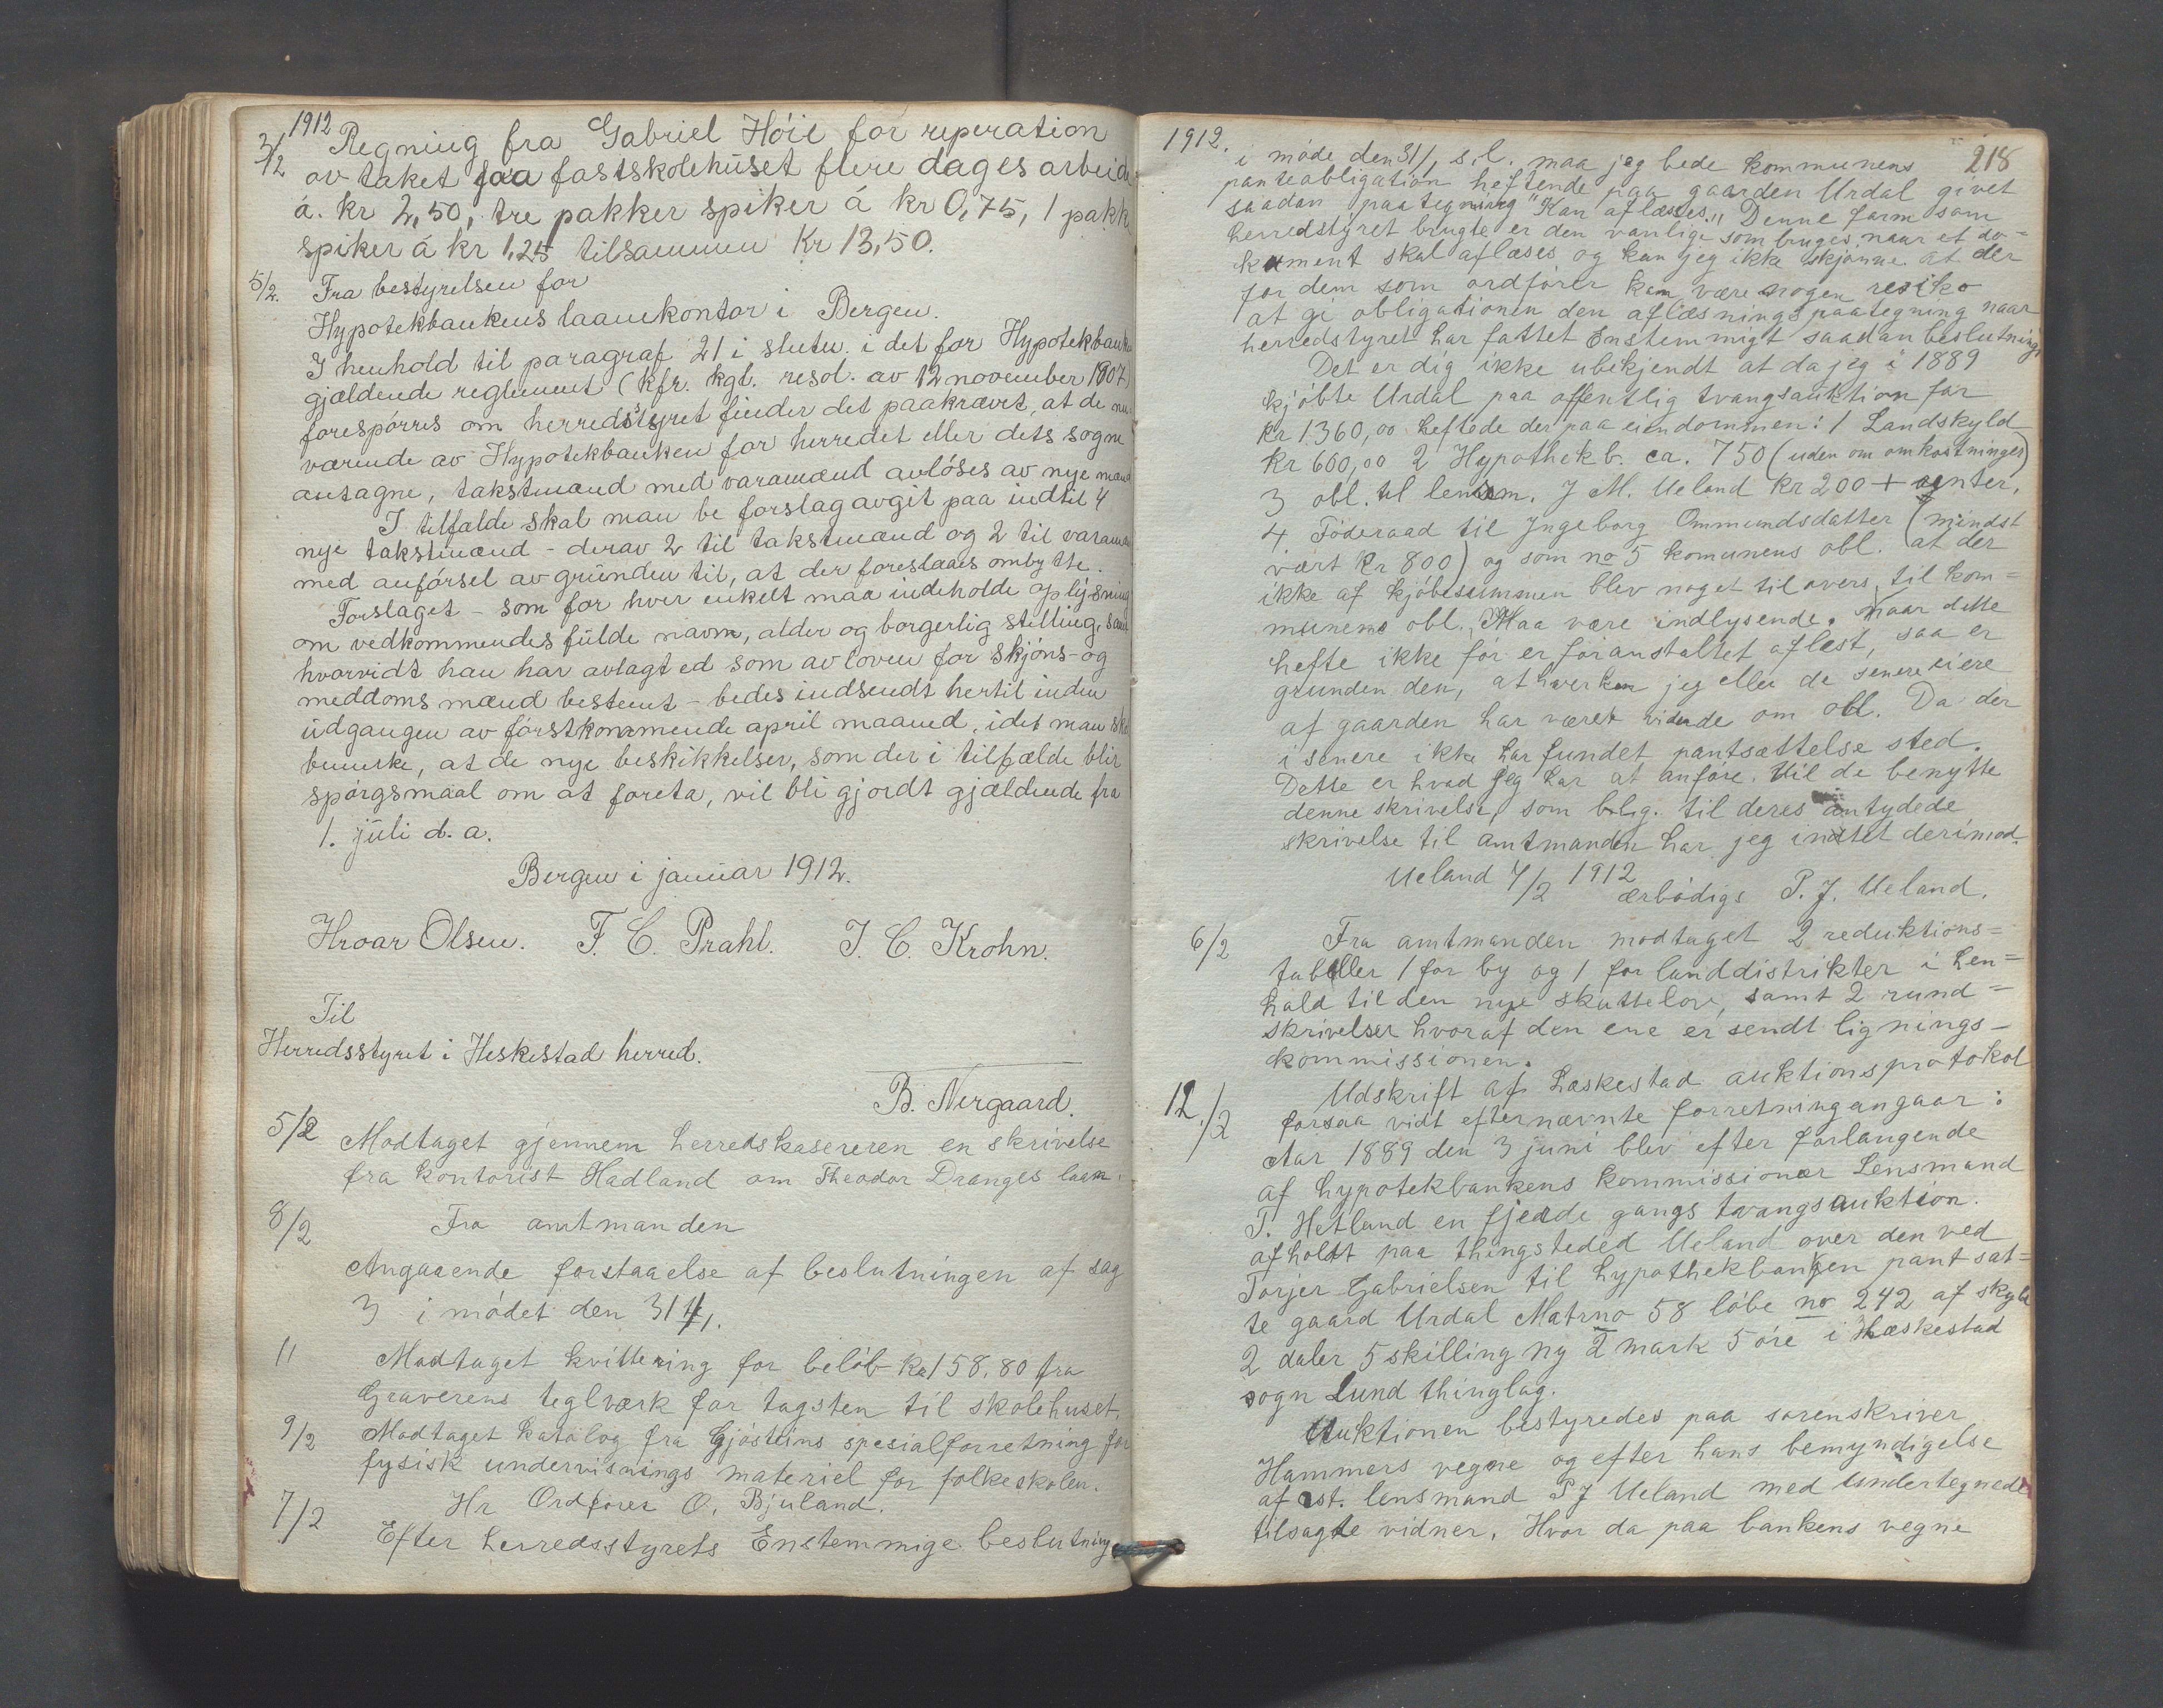 1912
3/2 Regning fra Gabriel Höie for reperation
av taket paa fastskolehuset flere dages arbeide
á. kr 2,50, tre pakker spiker á kr 0,75, 1 pakk
spiker á kr 1,25 tilsammen Kr 13,50.
5/2. Fra bestyrelsen for
Hypotekbankens laanekontor i Bergen.
I henhold til paragraf 21 i sluten i det for Hypotekbank
gjældende reglement (kfr. kgl. resol. av 12 november 1907)
forespörres om herredsstyret finder det paakrævet, at de nu
værende av Hypotekbanken for herredet eller dets sogne
antagne, takstmænd med varamænd avlöses av nye mænd
I tilfælde skal man be forslag avgit paa indtil 4
nye takstmænd - derav 2 til takstmænd og 2 til varamæn
med anförsel av grunden til, at der foreslaaes ombytte.
Forslaget - som for hver enkelt maa indeholde oplysning
om vedkommendes fulde navn, alder og borgerlig stilling, samt
hvorvidt han har avlagt ed som av loven for skjöns- og
meddoms mænd bestemt - bedes indsendt hertil inden
udgangen av förstkommende april maaned, idet man skal
bemerke, at de nye beskikkelser, som der i tilfælde blir
spörgsmaal om at foreta, vil bli gjordt gjældende fra
1. juli d. a.
Bergen i januar 1912.
Hroar Olsen. F. C. Prahl. J. C. Krohn.
Til
Herredsstyret i Heskestad herred.
B. Nergaard.
5/2 Modtaget gjennem herredskasereren en skrivelse
fra kontorist Hadland om Theodor Dranges laan.
8/2 Fra amtmanden
Angaaende forstaaelse af beslutningen af sag
3 i mödet den 31/1.
11 Modtaget kvittering for belöb kr 158,80 fra
Graverens teglværk for tagsten til skolehuset.
9/2 Modtaget katalog fra Gjösteins spesialforretning for
fysisk undervisnings materiel for folkeskolen.
7/2 Hr Ordförer O. Bjuland.
Efter herredsstyrets Enstemmige beslutning
1912. 218
i möde den 31/1 s.l. maa jeg bede kommunens
panteobligation heftende paa gaarden Urdal givet
saadan paategning "Kan aflæses." Denne form som
herredstyret brugte er den vanlige som bruges naar et do=
kument skal aflæses og kan jeg ikke skjönne at der
for dem som ordförer kan være nogen resiko
at gi obligationen den aflæsnings paategning naar
herredstyret har fattet Enstemmigt saadan beslutning.
Det er dig ikke ubekjendt at da jeg i 1889
kjöbte Urdal paa offentlig tvangsauktion for
kr 1360,00 heftede der paa eiendommen: 1 Landskyld
kr 600,00 2 Hypothekb. ca. 750 (uden om omkostninger)
3 obl. til lensm. J M. Ueland kr 200 + renter,
4 Föderaad til Ingeborg Ommundsdatter (mindst
vært kr 800) og som no 5 komunens obl. at der
ikke af kjöbesummen blev noget tilovers til kom=
munens obl. Maa være indlysende. Naar dette
hefte ikke för er foranstaltet aflest, saa er
grunden den, at hverken jeg eller de senere eiere
af gaarden har været vidende om obl. Da der
i senere ikke har fundet pantsættelse sted.
Dette er hvad jeg har at anföre. Vil de benytte
denne skrivelse, som bilig. til deres antydede
skrivelse til amtmanden har jeg intet derimod.
Ueland 4/2 1912
ærbödigs P. J. Ueland.
6/2 Fra amtmanden modtaget 2 reduktions=
tabeller 1 for by og 1 for landdistrikter i hen=
hold til den nye skattelov, samt 2 rund=
skrivelser hvoraf den ene er sendt lignings-
kommissionen.
12/2 Udskrift af Hæskestad auktionsprotokol
forsaa vidt efternævnte forretning angaar:
Aar 1889 den 3 juni blev efter forlangende
af hypotekbankens kommissionær Lensmand
T. Hetland en fjerde gangs tvangsauktion
afholdt paa thingsteded Ueland over den ved
Torjer Gabrielsen til hypothekbanken pantsat=
te gaard Urdal Matrno 58 löbe no 242 af skyld
2 daler 5 skilling ny 2 mark 5 öre i Hæskestad
sogn Lund thinglag.
Auktionen bestyredes paa sorenskriver
Hammers vegne og efter hans bemyndigelse
af cst. lensmand P J Ueland med undertegnede
tilsagte vidner. Hvor da paa bankens vegne